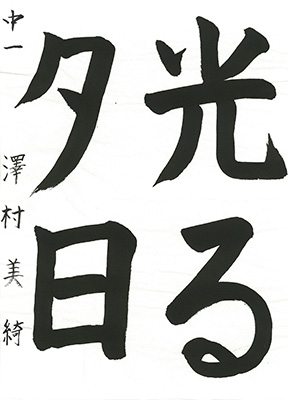 光る
夕日
中一 澤村美綺